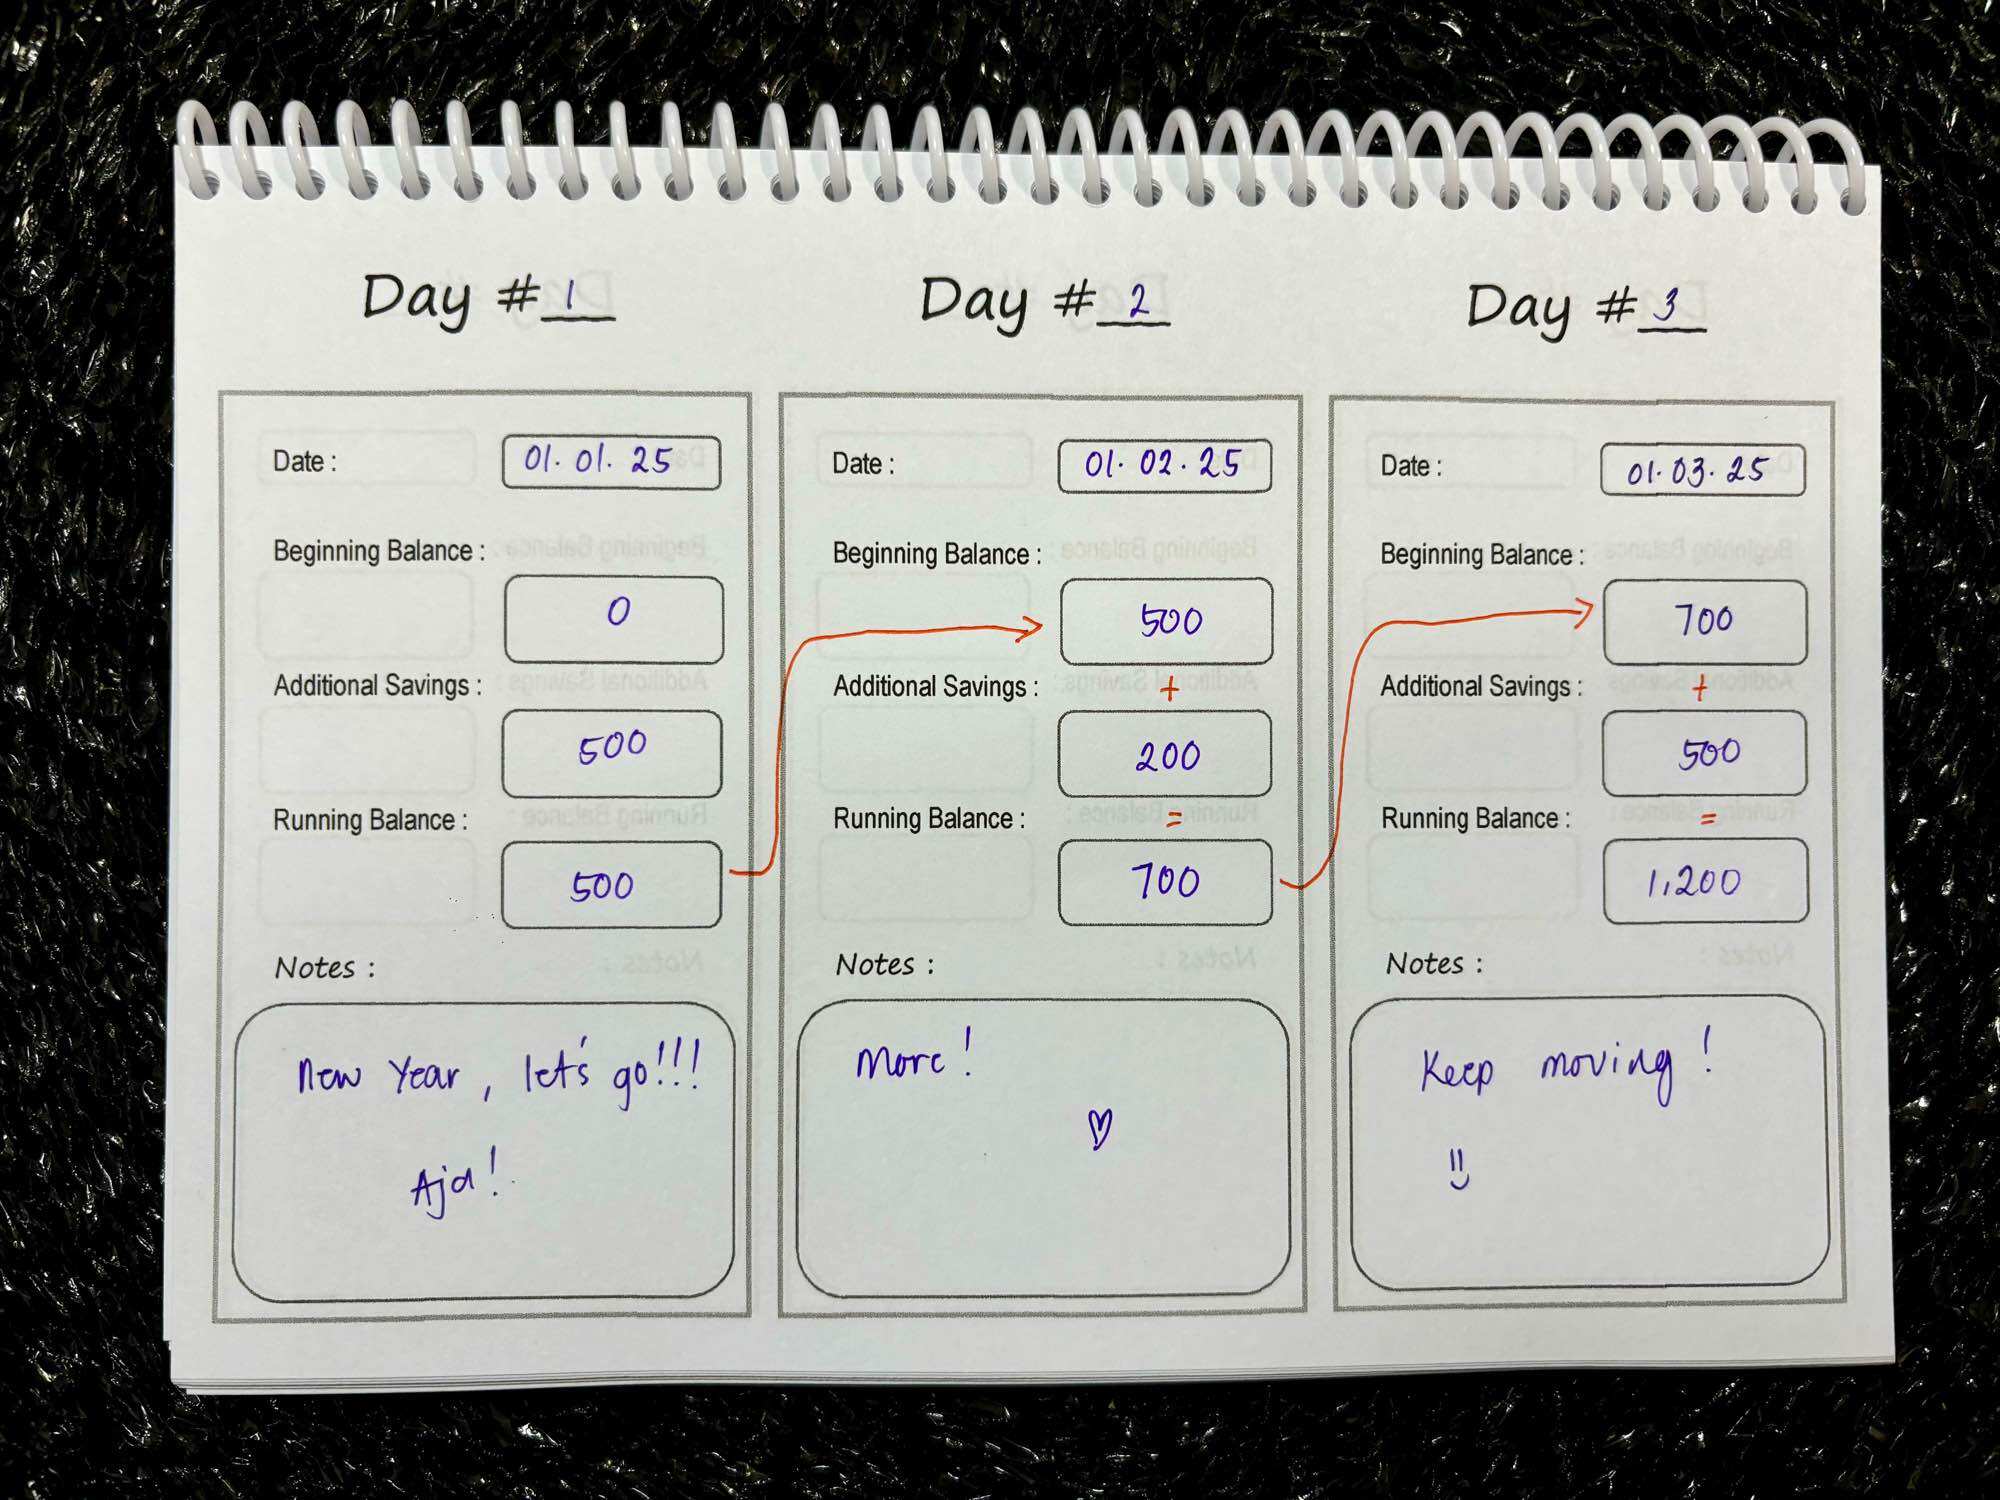 Day #1
Date : 01.01.25
Beginning Balance :
0
Additional Savings :
500
Running Balance :
500
Notes :
New Year, let's go!!!
Aja!
Day #2
Date : 01.02.25
Beginning Balance :
500
Additional Savings : +
200
Running Balance : =
700
Notes :
More!
Day #3
Date : 01.03.25
Beginning Balance :
700
Additional Savings : +
500
Running Balance : =
1,200
Notes :
Keep moving!